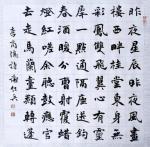 昨夜星辰昨夜風畫
樓西畔桂堂東身無
彩鳳雙飛翼心有靈
犀一點通隔座送鉤
春酒暖分曹射覆蠟
燈紅嗟余聽鼓應官
去走馬蘭臺類轉蓬
李商隱詩 謝